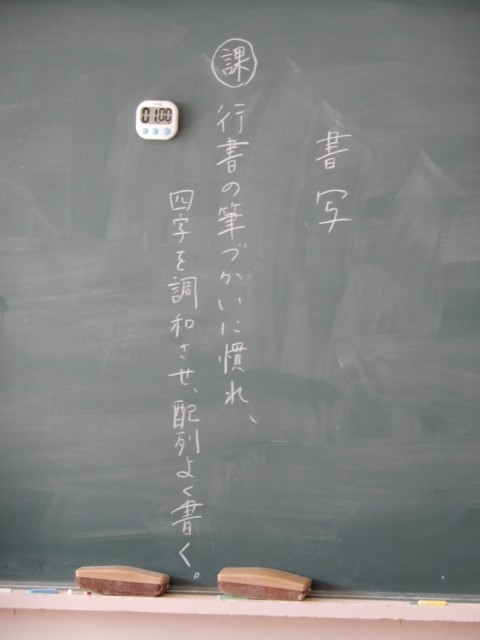 書写
課 行書の筆づかいに慣れ、
四字を調和させ、配列よく書く。
01:00